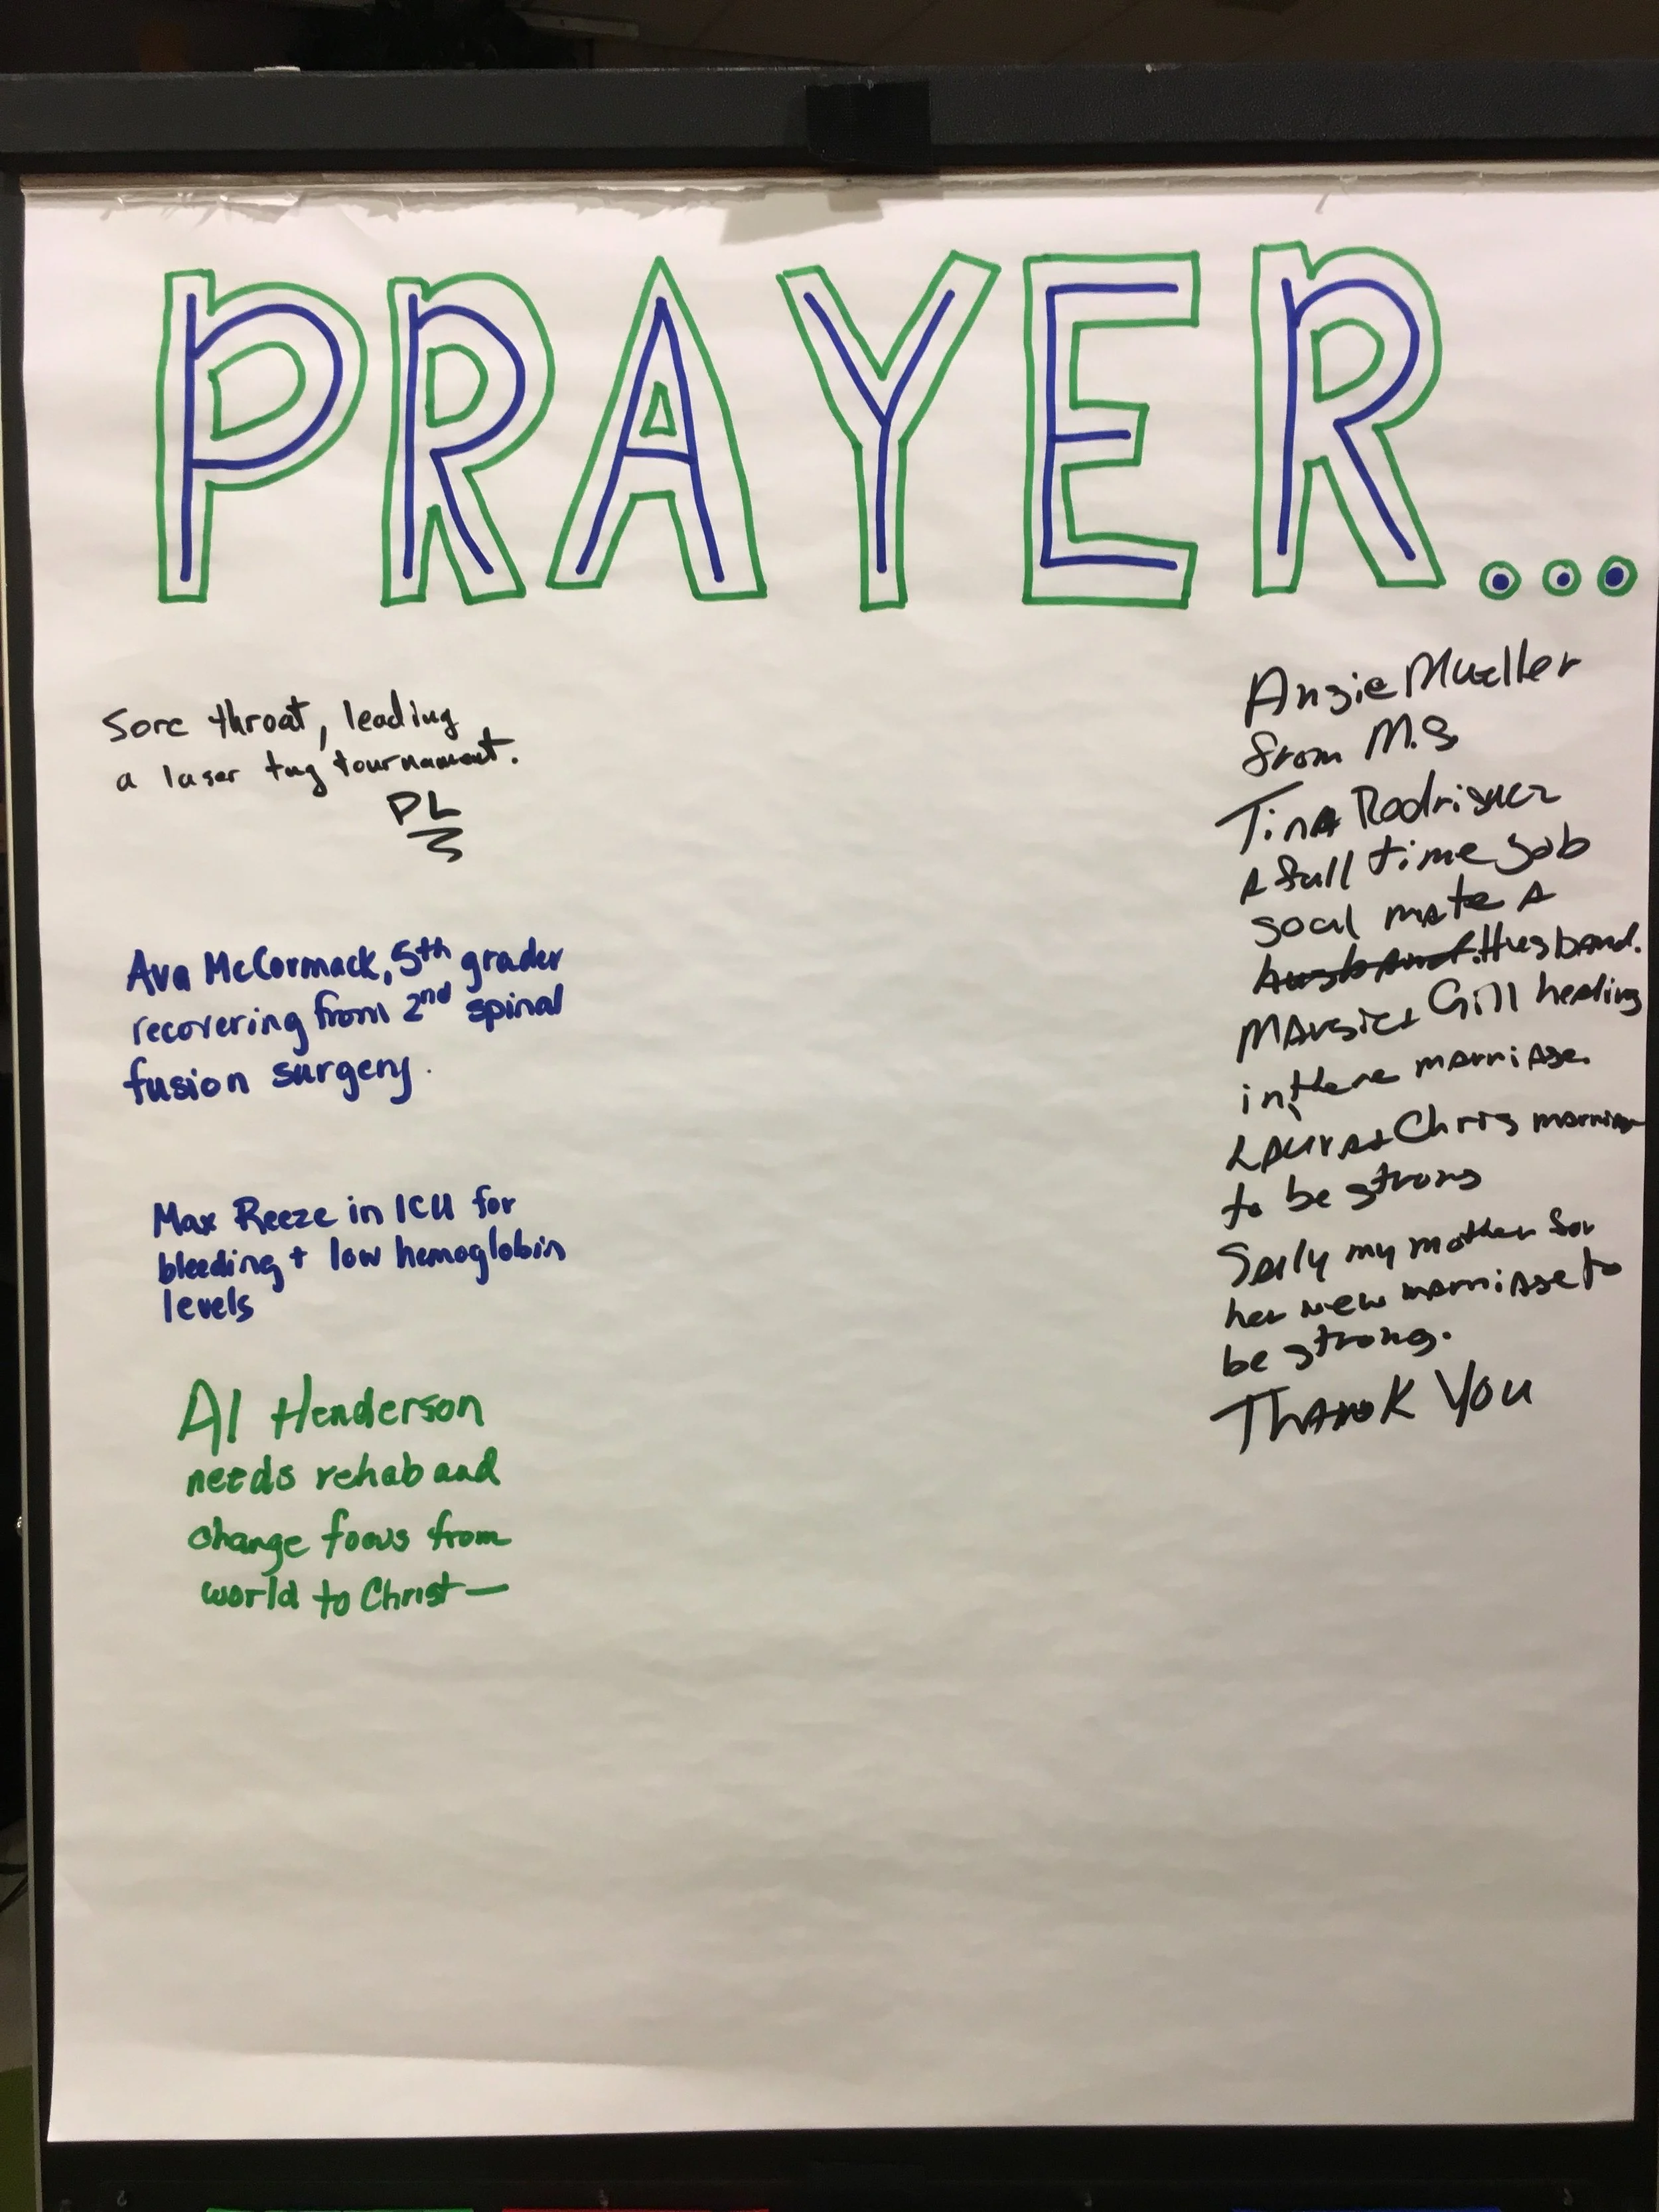 PRAYER...
Sore throat, leading
a laser tag tournament.
PL
Ava McCormack, 5th grader
recovering from 2nd spinal
fusion surgery.
Max Reeze in ICU for
bleeding + low hemoglobin
levels
Al Henderson
needs rehab and
change focus from
world to Christ—
Angie Mueller
from M.S
Tina Rodriguez
A full time job
soal mate A
husband. Husband.
Margie + Gill healing
in there marriage.
Laura + Chris marriage
to be strong
Sally my mother for
her new marriage to
be strong.
Thank You